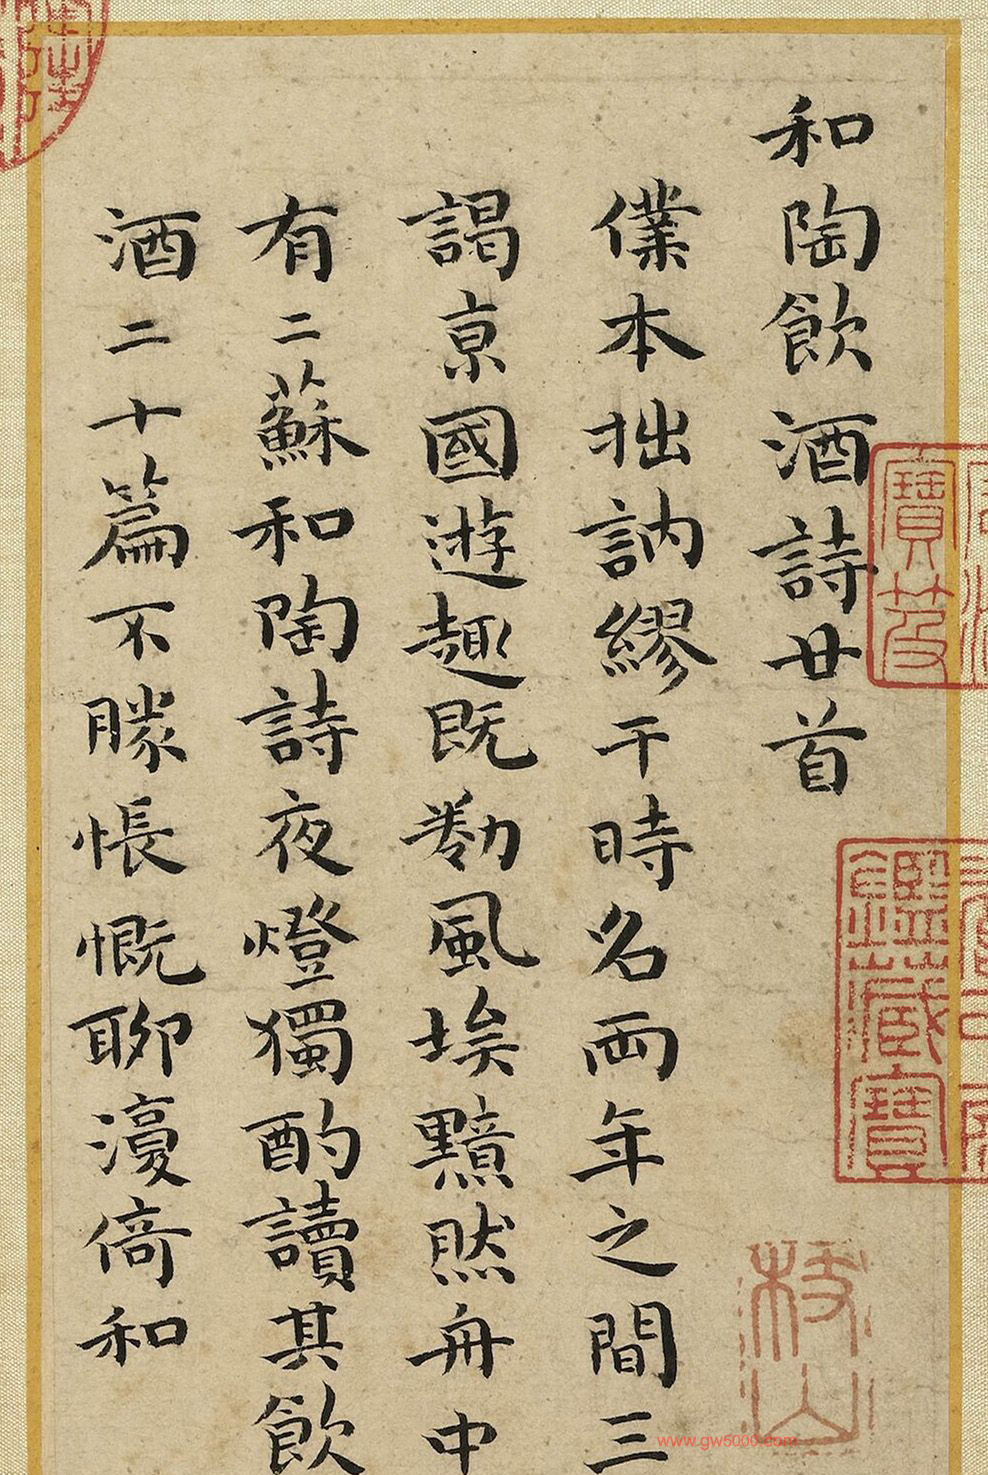 和陶飲酒詩廿首
僕本拙訥繆干時名兩年之間三
謁京國遊趣既勌風埃黯然舟中
有二蘇和陶詩夜燈獨酌讀其飲
酒二十篇不勝悵慨聊濅倚和
寶笈
鑑藏寶
www.gw5000.com